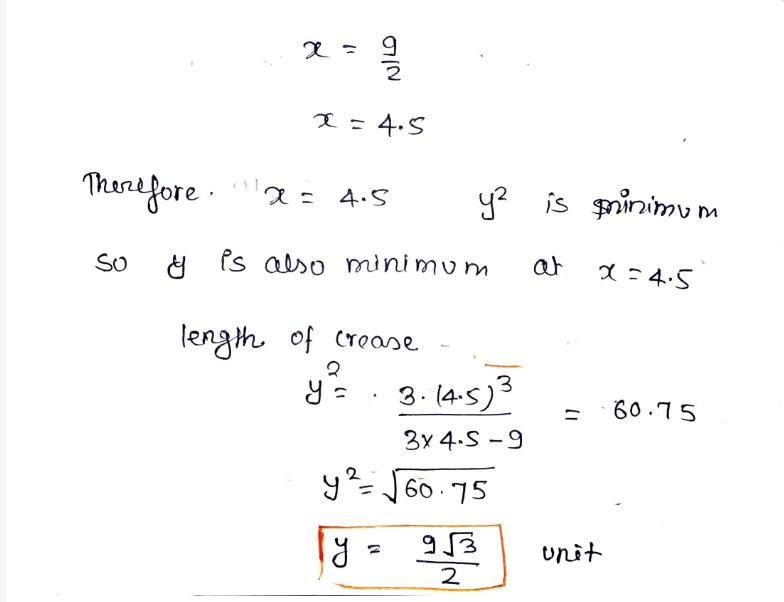 x = 9/2
x = 4.5
Therefore. x = 4.5 y² is minimum
so y is also minimum at x = 4.5
length of crease -
y² = . 3. (4.5)³ / 3x 4.5 - 9 = 60.75
y² = √60.75
y = 9√3/2 unit